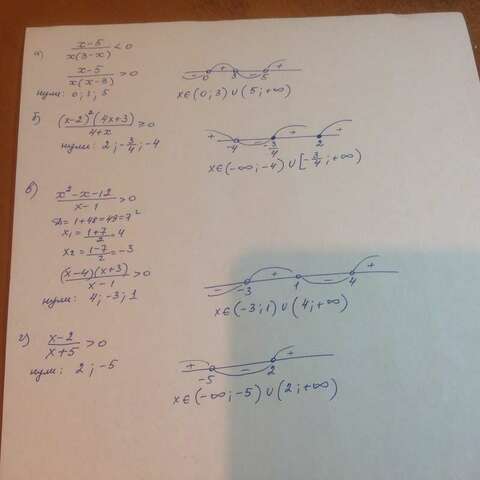 а) (x-5)/(x(3-x)) < 0
(x-5)/(x(x-3)) > 0
нули: 0; 3; 5
- 0 + 3 - 5 +
x∈(0;3)∪(5;+∞)
б) ((x-2)²(4x+3))/(4+x) ≥ 0
нули: 2; -3/4; -4
+ -4 - -3/4 + 2 +
x∈(-∞;-4)∪[-3/4;+∞)
в) (x²-x-12)/(x-1) > 0
D = 1+48=49=7²
x₁ = (1+7)/2 = 4
x₂ = (1-7)/2 = -3
((x-4)(x+3))/(x-1) > 0
нули: 4; -3; 1
- -3 + 1 - 4 +
x∈(-3;1)∪(4;+∞)
г) (x-2)/(x+5) > 0
нули: 2; -5
+ -5 - 2 +
x∈(-∞;-5)∪(2;+∞)